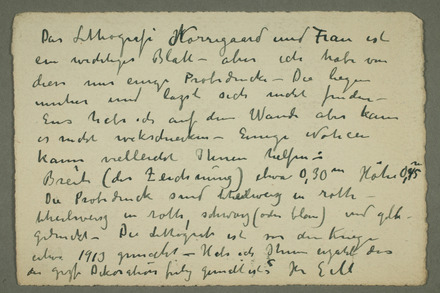 Das Lithografi Norregaard und Frau ist
ein wichtiges Blatt – aber ich habe von
diesen nur einige Probedrucke – Die liegen
und lässt sich nicht finden –
Eins habe ich auf dem Wand aber kann
es nicht – Einige Notizen
kann vielleicht Ihnen helfen:
Breite (der Zeichnung) etwa 0,30 m Höhe 0,45 m
Die Probedruck sind theilweis in roth –
theilweis in roth, schwarz (oder blau) und gelb –
gedruckt – Die Lithografi ist vor dem Kriege
etwa 1913 gemacht – Habe ich Ihnen das
die grosse Dekoration fertig gemalt ist? Ihr